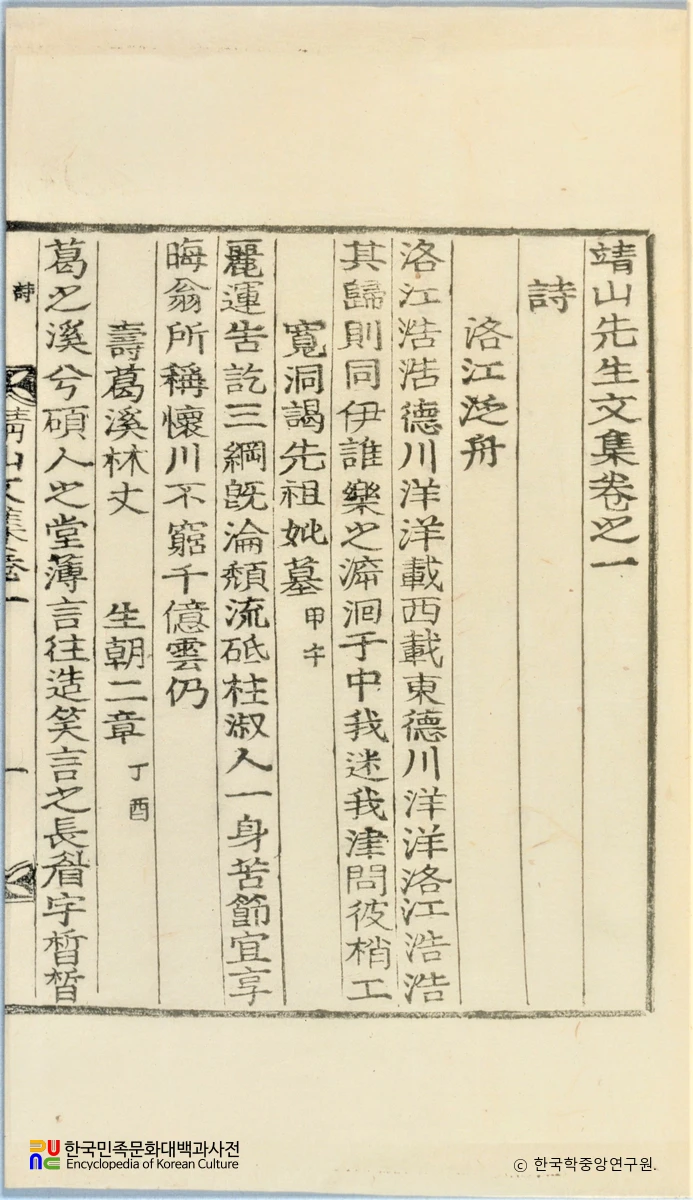 靖山先生文集卷之一
詩
洛江泛舟
洛江浩浩德川洋洋載西載東德川洋洋洛江浩浩
其歸則同伊誰樂之㴑洄于中我迷我津問彼梢工
寬洞謁先祖妣墓 甲午
麗運告訖三綱旣淪頹流砥柱淑人一身苦節宜享
晦翁所稱懷川不窮千億雲仍
壽葛溪林丈 生朝二章 丁酉
葛之溪兮碩人之堂薄言往造笑言之長眉宇晳晳
詩 靖山文集卷一 一
한국민족문화대백과사전
Encyclopedia of Korean Culture
ⓒ 한국학중앙연구원.